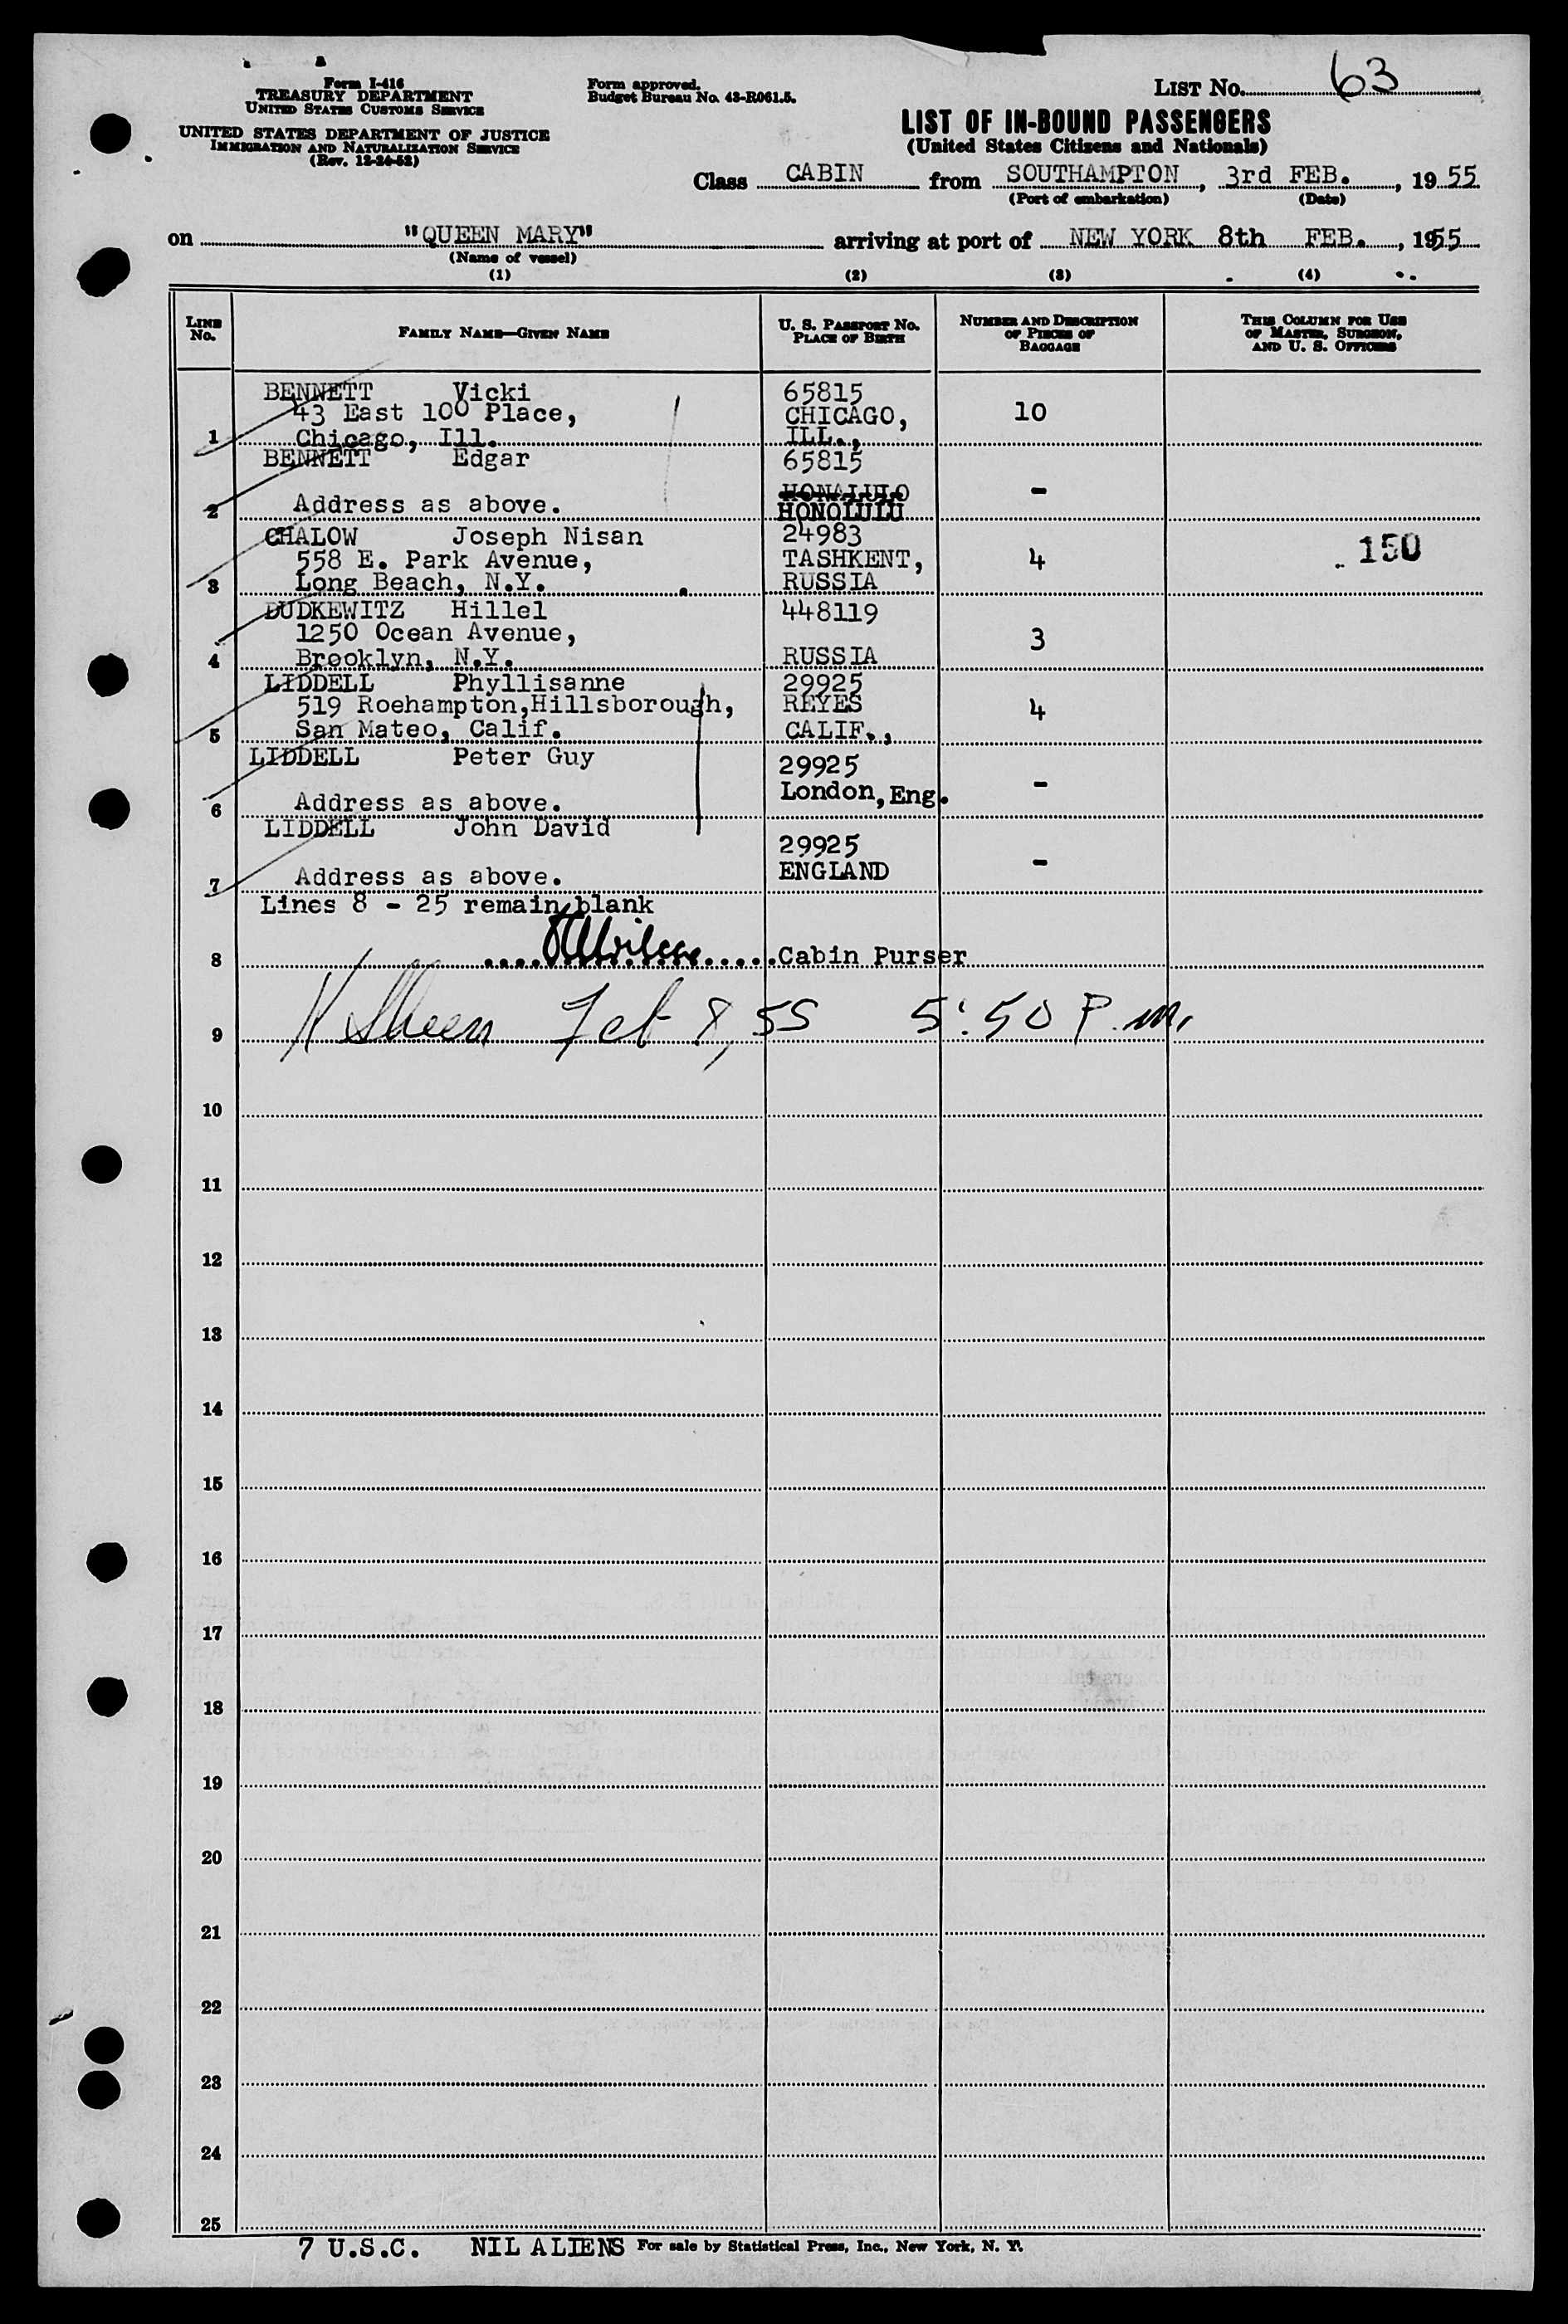 Form I-416
TREASURY DEPARTMENT
UNITED STATES CUSTOMS SERVICE
UNITED STATES DEPARTMENT OF JUSTICE
IMMIGRATION AND NATURALIZATION SERVICE
(Rev. 12-24-52)
Form approved.
Budget Bureau No. 43-R061.5.
LIST No. 63
LIST OF IN-BOUND PASSENGERS
(United States Citizens and Nationals)
Class CABIN from SOUTHAMPTON, 3rd FEB., 19 55
(Port of embarkation) (Date)
on "QUEEN MARY" arriving at port of NEW YORK 8th FEB., 1955
(Name of vessel)
(1) (2) (3) (4)
LINE No. FAMILY NAME—GIVEN NAME U. S. PASSPORT No. PLACE OF BIRTH NUMBER AND DESCRIPTION OF PIECES OF BAGGAGE THIS COLUMN FOR USE OF MASTER, SURGEON, AND U. S. OFFICERS
BENNETT Vicki 65815
43 East 100 Place, CHICAGO, 10
1 Chicago, Ill. ILL.,
BENNETT Edgar 65815
HONALULO -
2 Address as above. HONOLULU
CHALOW Joseph Nisan 24983
558 E. Park Avenue, TASHKENT, 4 150
3 Long Beach, N.Y. RUSSIA
DUDKEWITZ Hillel 448119
1250 Ocean Avenue, 3
4 Brooklyn, N.Y. RUSSIA
LIDDELL Phyllisanne 29925
519 Roehampton,Hillsborough, REYES 4
5 San Mateo, Calif. CALIF.,
LIDDELL Peter Guy 29925
London, Eng. -
6 Address as above.
LIDDELL John David
29925
7 Address as above. ENGLAND -
Lines 8 - 25 remain blank
8 Cabin Purser
9 Feb 8, 55 5:50 P.m.
10
11
12
13
14
15
16
17
18
19
20
21
22
23
24
25
7 U.S.C. NIL ALIENS For sale by Statistical Press, Inc., New York, N. Y.